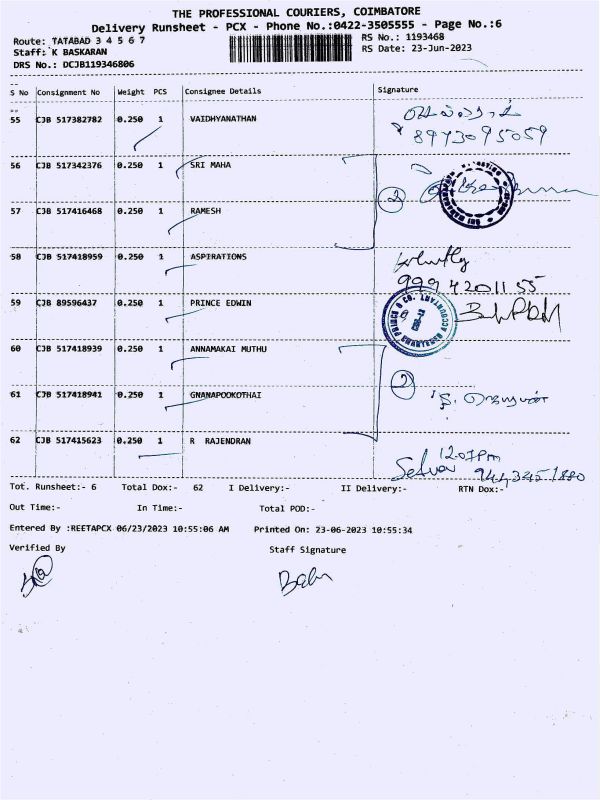 THE PROFESSIONAL COURIERS, COIMBATORE
Delivery Runsheet - PCX - Phone No.:0422-3505555 - Page No.:6
Route: TATABAD 3 4 5 6 7
RS No.: 1193468
Staff: K BASKARAN
RS Date: 23-Jun-2023
DRS No.: DCJB119346806
S No Consignment No Weight PCS Consignee Details Signature
55 CJB 517382782 0.250 1 VAIDHYANATHAN
8973095059
56 CJB 517342376 0.250 1 SRI MAHA
2
57 CJB 517416468 0.250 1 RAMESH
58 CJB 517418959 0.250 1 ASPIRATIONS
9994201155
59 CJB 89596437 0.250 1 PRINCE EDWIN
60 CJB 517418939 0.250 1 ANNAMAKAI MUTHU
2
61 CJB 517418941 0.250 1 GNANAPOOKOTHAI
62 CJB 517415623 0.250 1 R RAJENDRAN
12.07pm
Selva
Tot. Runsheet:- 6 Total Dox:- 62 I Delivery:- II Delivery:- RTN Dox:-
Out Time:- In Time:- Total POD:-
Entered By :REETAPCX 06/23/2023 10:55:06 AM Printed On: 23-06-2023 10:55:34
Verified By Staff Signature